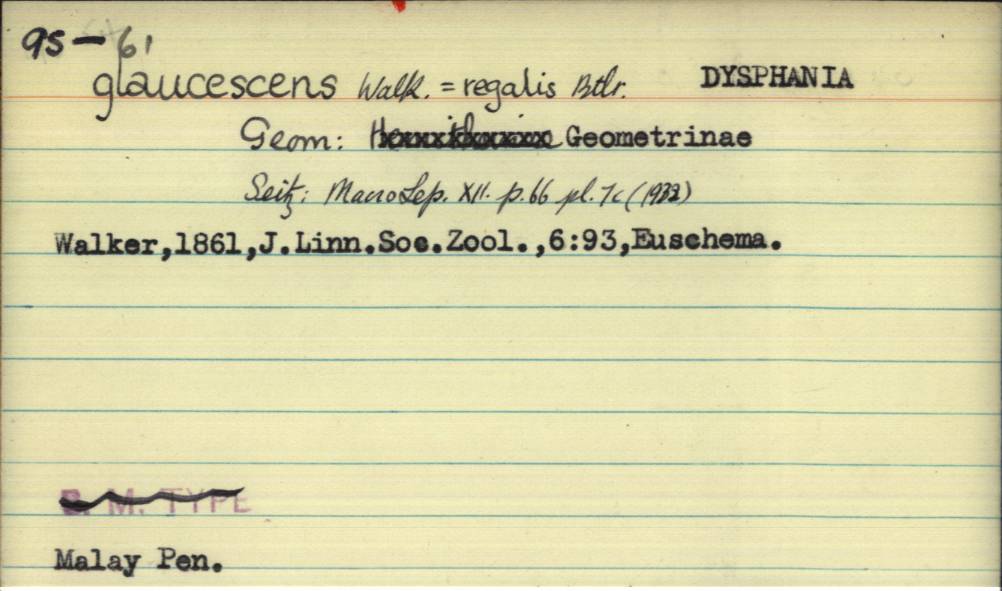 95-61
glaucescens Walk. = regalis Btlr. DYSPHANIA
Geom: Geometrinae
Seitz: MacroLep. XII. p.66 pl. 7c (1932)
Walker,1861,J.Linn.Soc.Zool.,6:93,Euschema.
B. M. TYPE
Malay Pen.